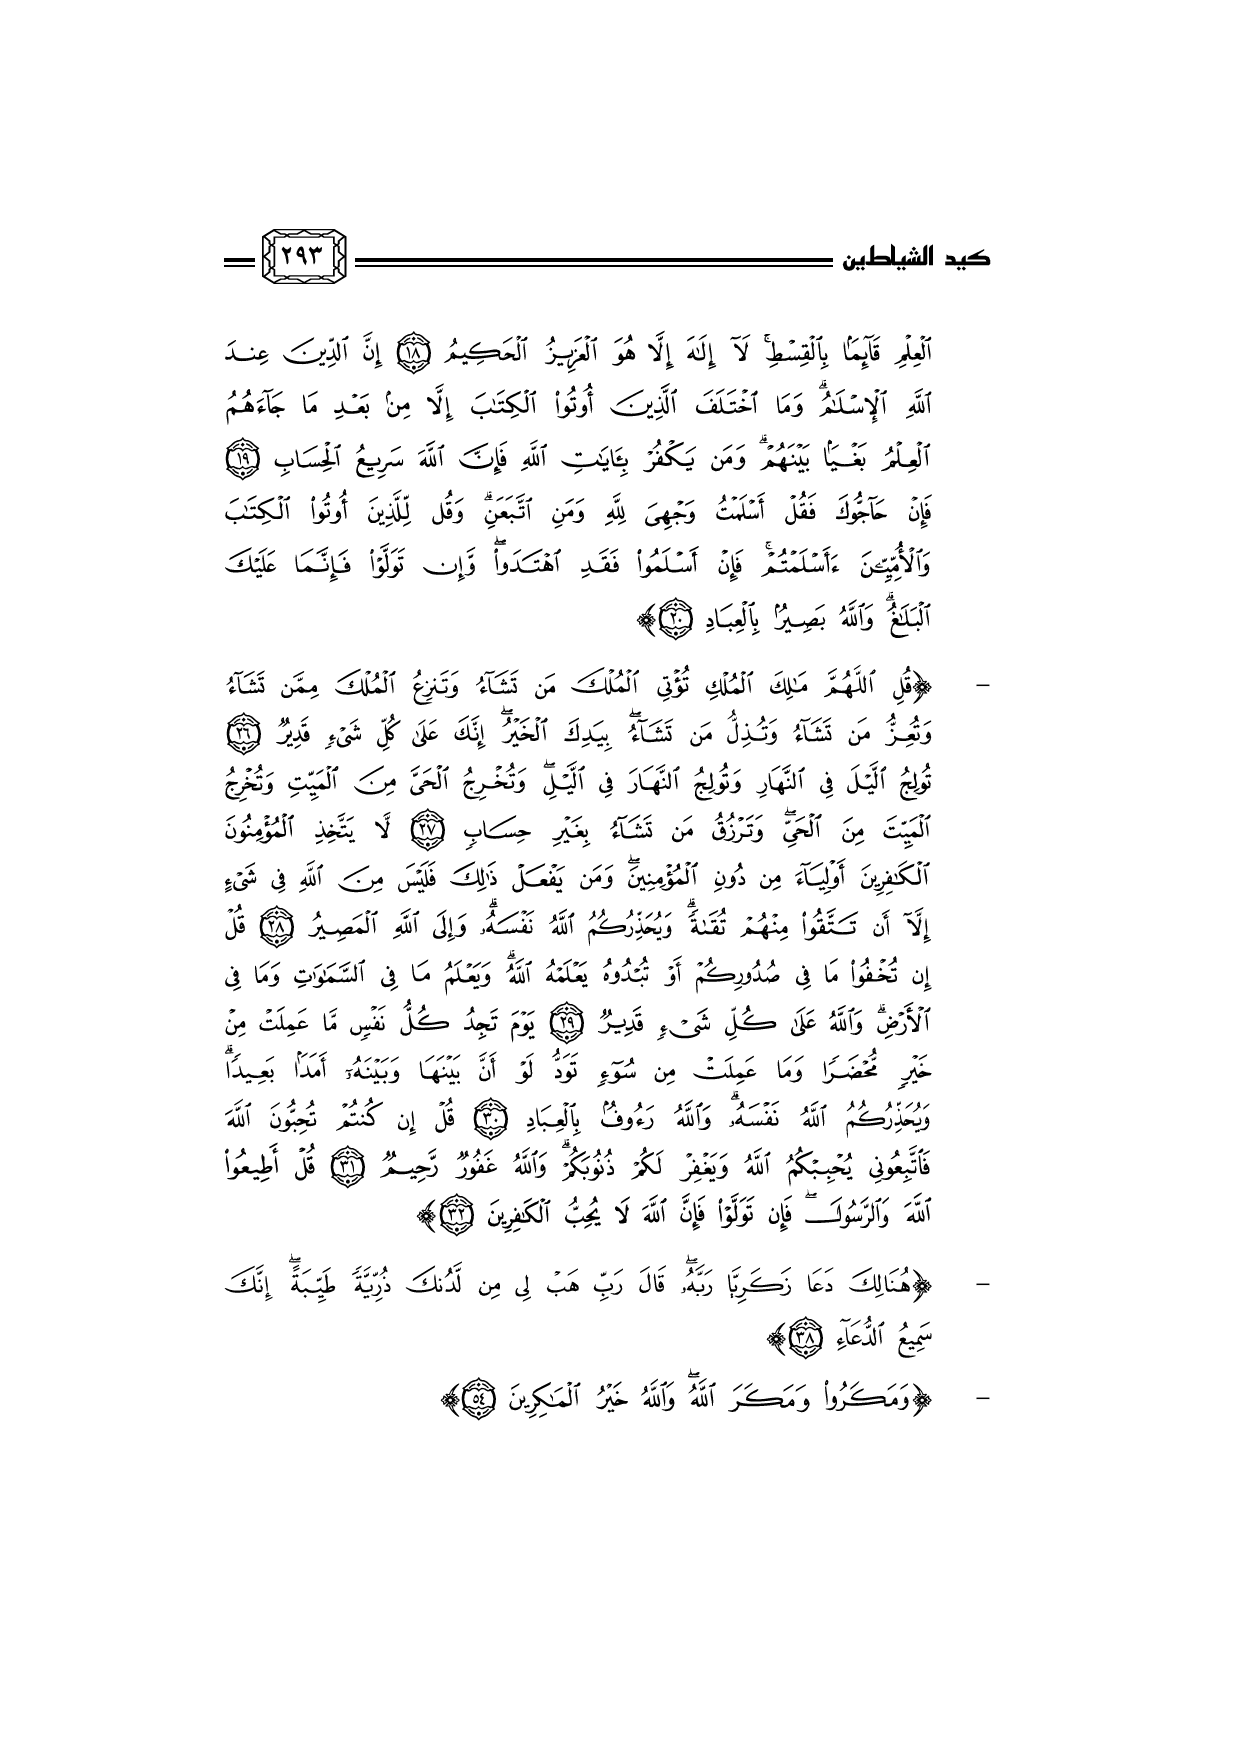 كيد الشياطين
٢٩٣
ٱلۡعِلۡمِ قَآئِمَۢا بِٱلۡقِسۡطِۚ لَآ إِلَٰهَ إِلَّا هُوَ ٱلۡعَزِيزُ ٱلۡحَكِيمُ ١٨ إِنَّ ٱلدِّينَ عِندَ
ٱللَّهِ ٱلۡإِسۡلَٰمُۗ وَمَا ٱخۡتَلَفَ ٱلَّذِينَ أُوتُواْ ٱلۡكِتَٰبَ إِلَّا مِنۢ بَعۡدِ مَا جَآءَهُمُ
ٱلۡعِلۡمُ بَغۡيَۢا بَيۡنَهُمۡۗ وَمَن يَكۡفُرۡ بِـَٔايَٰتِ ٱللَّهِ فَإِنَّ ٱللَّهَ سَرِيعُ ٱلۡحِسَابِ ١٩
فَإِنۡ حَآجُّوكَ فَقُلۡ أَسۡلَمۡتُ وَجۡهِيَ لِلَّهِ وَمَنِ ٱتَّبَعَنِۗ وَقُل لِّلَّذِينَ أُوتُواْ ٱلۡكِتَٰبَ
وَٱلۡأُمِّيِّـۧنَ ءَأَسۡلَمۡتُمۡۚ فَإِنۡ أَسۡلَمُواْ فَقَدِ ٱهۡتَدَواْۖ وَّإِن تَوَلَّوۡاْ فَإِنَّمَا عَلَيۡكَ
ٱلۡبَلَٰغُۗ وَٱللَّهُ بَصِيرُۢ بِٱلۡعِبَادِ ٢٠﴾
- ﴿قُلِ ٱللَّهُمَّ مَٰلِكَ ٱلۡمُلۡكِ تُؤۡتِي ٱلۡمُلۡكَ مَن تَشَآءُ وَتَنزِعُ ٱلۡمُلۡكَ مِمَّن تَشَآءُ
وَتُعِزُّ مَن تَشَآءُ وَتُذِلُّ مَن تَشَآءُۖ بِيَدِكَ ٱلۡخَيۡرُۖ إِنَّكَ عَلَىٰ كُلِّ شَيۡءٖ قَدِيرٞ ٢٦
تُولِجُ ٱلَّيۡلَ فِي ٱلنَّهَارِ وَتُولِجُ ٱلنَّهَارَ فِي ٱلَّيۡلِۖ وَتُخۡرِجُ ٱلۡحَيَّ مِنَ ٱلۡمَيِّتِ وَتُخۡرِجُ
ٱلۡمَيِّتَ مِنَ ٱلۡحَيِّۖ وَتَرۡزُقُ مَن تَشَآءُ بِغَيۡرِ حِسَابٖ ٢٧ لَّا يَتَّخِذِ ٱلۡمُؤۡمِنُونَ
ٱلۡكَٰفِرِينَ أَوۡلِيَآءَ مِن دُونِ ٱلۡمُؤۡمِنِينَۖ وَمَن يَفۡعَلۡ ذَٰلِكَ فَلَيۡسَ مِنَ ٱللَّهِ فِي شَيۡءٍ
إِلَّآ أَن تَتَّقُواْ مِنۡهُمۡ تُقَىٰةٗۗ وَيُحَذِّرُكُمُ ٱللَّهُ نَفۡسَهُۥۗ وَإِلَى ٱللَّهِ ٱلۡمَصِيرُ ٢٨ قُلۡ
إِن تُخۡفُواْ مَا فِي صُدُورِكُمۡ أَوۡ تُبۡدُوهُ يَعۡلَمۡهُ ٱللَّهُۗ وَيَعۡلَمُ مَا فِي ٱلسَّمَٰوَٰتِ وَمَا فِي
ٱلۡأَرۡضِۗ وَٱللَّهُ عَلَىٰ كُلِّ شَيۡءٖ قَدِيرٞ ٢٩ يَوۡمَ تَجِدُ كُلُّ نَفۡسٖ مَّا عَمِلَتۡ مِنۡ
خَيۡرٖ مُّحۡضَرٗا وَمَا عَمِلَتۡ مِن سُوٓءٖ تَوَدُّ لَوۡ أَنَّ بَيۡنَهَا وَبَيۡنَهُۥٓ أَمَدَۢا بَعِيدٗاۗ
وَيُحَذِّرُكُمُ ٱللَّهُ نَفۡسَهُۥۗ وَٱللَّهُ رَءُوفُۢ بِٱلۡعِبَادِ ٣٠ قُلۡ إِن كُنتُمۡ تُحِبُّونَ ٱللَّهَ
فَٱتَّبِعُونِي يُحۡبِبۡكُمُ ٱللَّهُ وَيَغۡفِرۡ لَكُمۡ ذُنُوبَكُمۡۗ وَٱللَّهُ غَفُورٞ رَّحِيمٞ ٣١ قُلۡ أَطِيعُواْ
ٱللَّهَ وَٱلرَّسُولَۖ فَإِن تَوَلَّوۡاْ فَإِنَّ ٱللَّهَ لَا يُحِبُّ ٱلۡكَٰفِرِينَ ٣٢﴾
- ﴿هُنَالِكَ دَعَا زَكَرِيَّا رَبَّهُۥۖ قَالَ رَبِّ هَبۡ لِي مِن لَّدُنكَ ذُرِّيَّةٗ طَيِّبَةًۖ إِنَّكَ
سَمِيعُ ٱلدُّعَآءِ ٣٨﴾
- ﴿وَمَكَرُواْ وَمَكَرَ ٱللَّهُۖ وَٱللَّهُ خَيۡرُ ٱلۡمَٰكِرِينَ ٥٤﴾